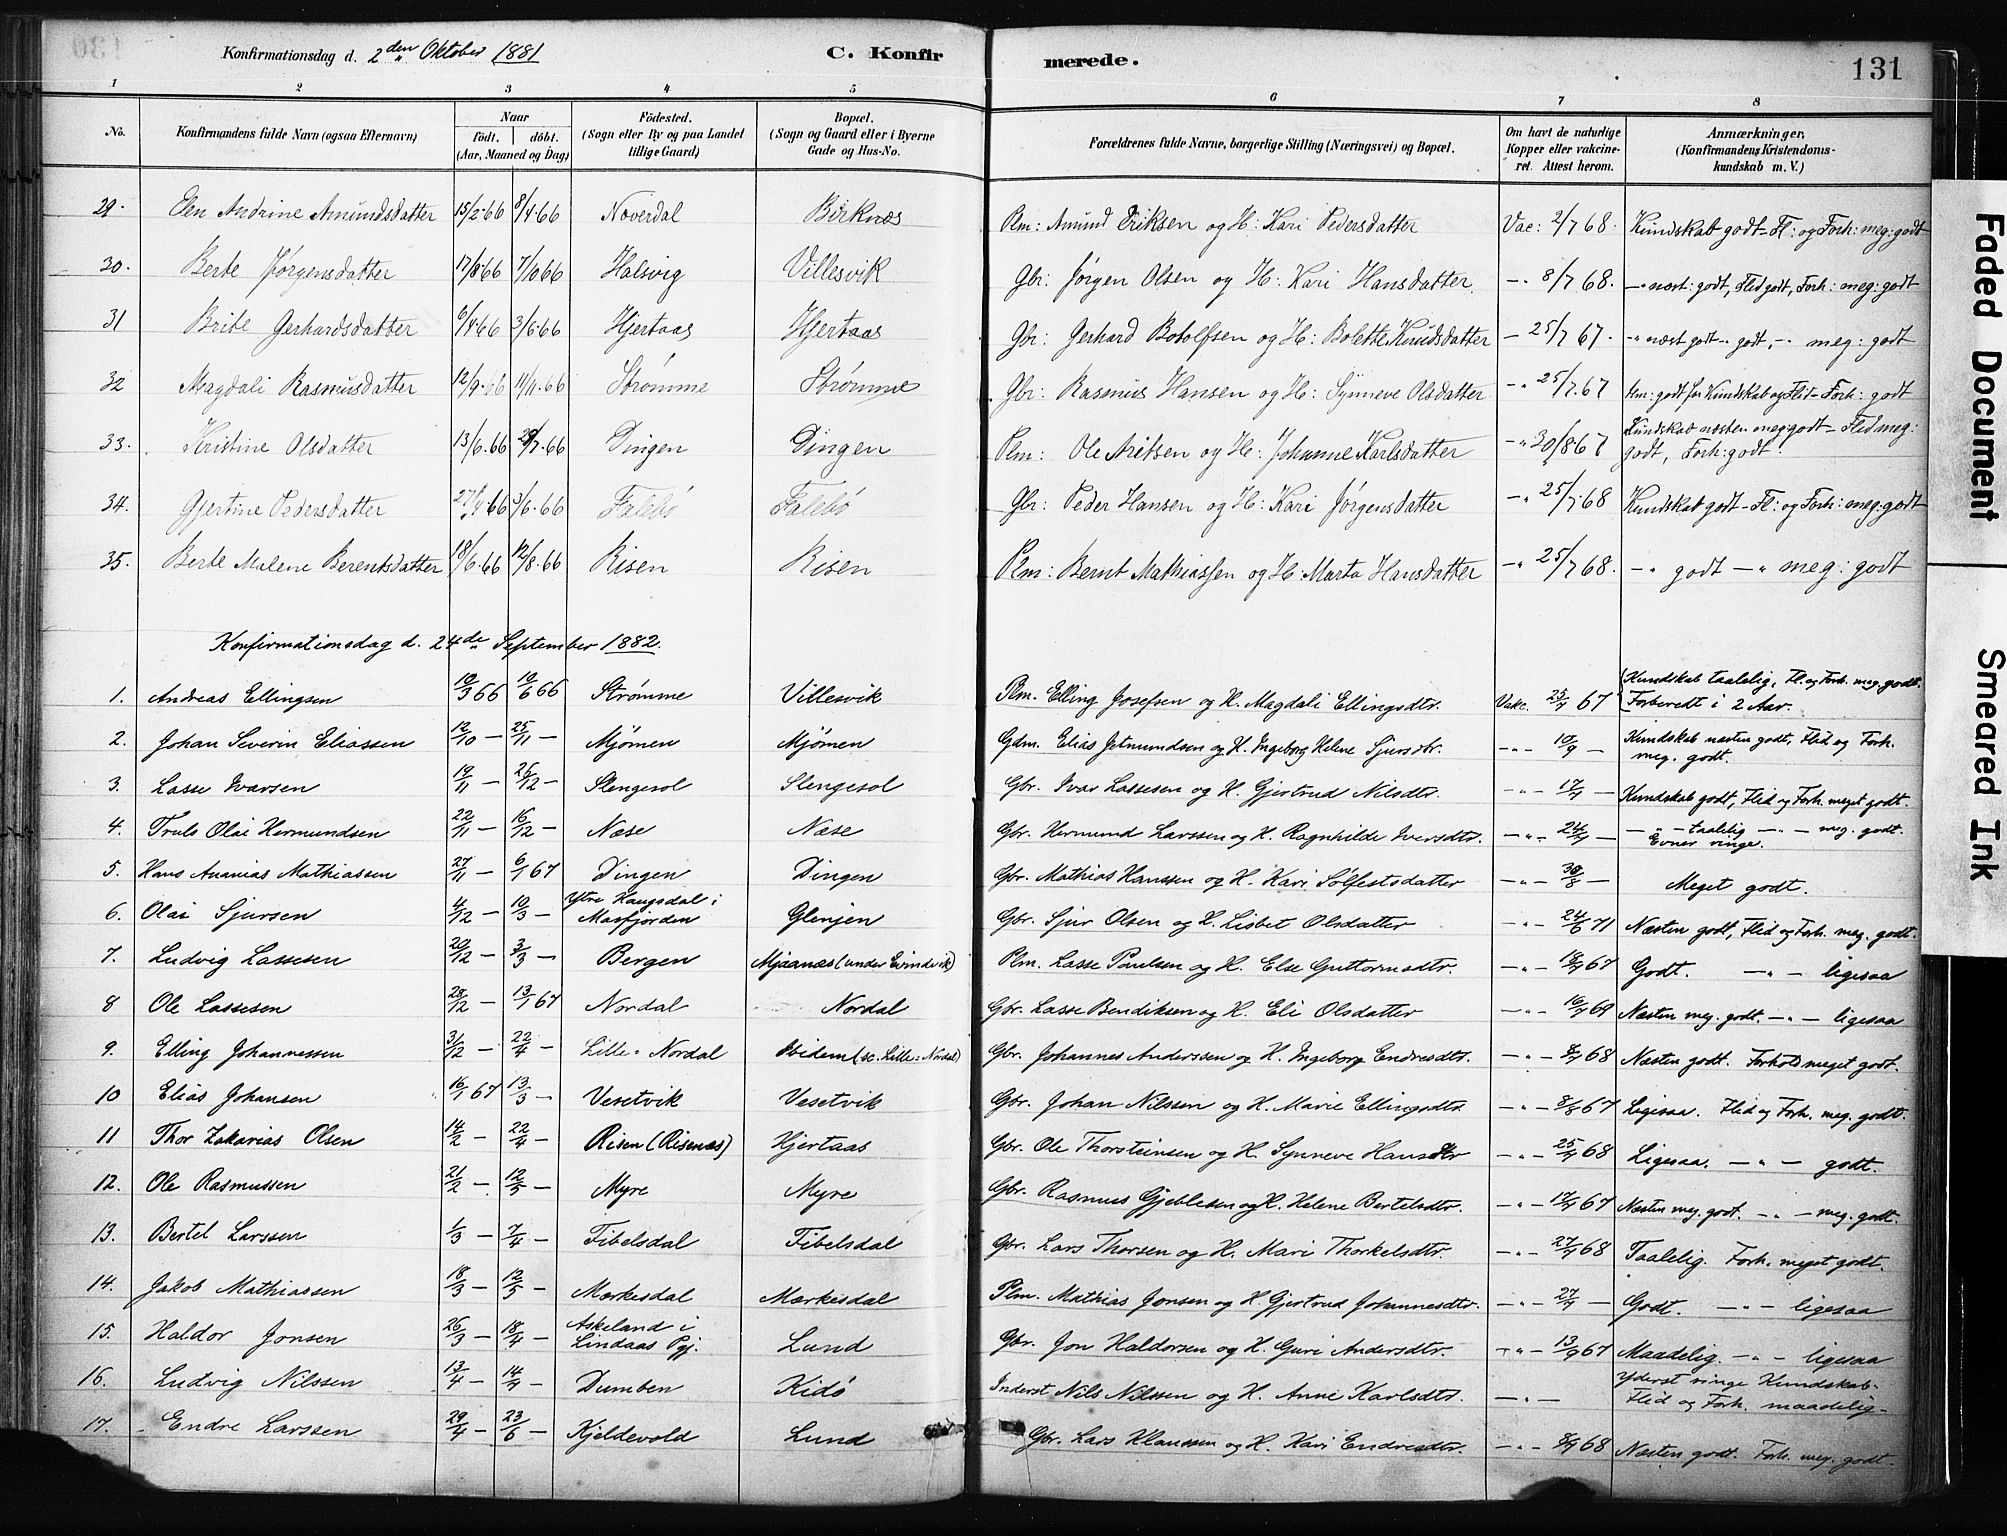 Konfirmationsdag d. 2den Oktober 1881 C. Konfirmerede. 131
1 2 3 4 5 6 7 8
No. Konfirmandens fulde Navn (ogsaa Efternavn) Naar født. døbt. (Aar, Maaned og Dag) Födested. (Sogn eller By og paa Landet tillige Gaard) Bopæl. (Sogn og Gaard eller i Byerne Gade og Hus-No. Forældrenes fulde Navne, borgerlige Stilling (Næringsvei) og Bopæl. Om havt de naturlige Kopper eller vakcineret. Attest herom. Anmærkninger, (Konfirmandens Kristendomskundskab m. V.)
29. Elen Andrine Amundsdatter 15/2-66 8/4-66 Noverdal Birknæs Plm: Amund Eriksen og H: Kari Pedersdatter Vac: 2/7 68. Kundskab godt - Fl: og Forh: meg: godt
30. Berte Jørgensdatter 17/8-66 7/10 66 Halsvig Villesvik Gbr: Jørgen Olsen og H: Kari Hansdatter -"- 8/7 68. -"- næst: godt, Flid godt, Forh: meg: godt
31 Brite Gerhardsdatter 6/4-66 3/6-66 Hjertaas Hjertaas Gbr: Gerhard Botolfsen og H: Bolette Knudsdatter - 25/7 67. -"- næst godt -"- godt, -"- meg: godt
32 Magdali Rasmusdatter 12/9-66 11/11-66 Strømme Strømme Gbr: Rasmus Hansen og H: Synneve Olsdatter -"- 25/7-67 Hm: godt for Kundskab og Flid - Forh: godt
33. Kristine Olsdatter 13/6-66 29/7-66 Dingen Dingen Plm: Ole Aritsen og H: Johanne Karlsdatter -"- 30/8 67 Kundskab næsten meg: godt - Flid meg: godt, Forh: godt
34. Gjertine Pedersdatter 27/4-66 3/6-66 Falebø Falebø Gbr: Peder Hansen og H: Kari Jørgensdatter -"- 25/7-68 Kundskab godt - Fl: og Forh: meg: godt
35. Berte Malene Berentsdatter 18/6-66 12/8-66 Risen Risen Plm: Bernt Mathiassen og H: Marta Hansdatter -"- 25/7 68. -"- godt -"- meg: godt
Konfirmationsdag d. 24de September 1882.
1. Andreas Ellingsen 19/3 66 10/6 66 Strømme Villesvik Plm. Elling Josefsen og H. Magdali Ellingsdtr. Vakc. 25/7 67 Kundskab taalelig, Fl. og Forh. meg. godt. Forberedt i 2 Aar.
2. Johan Severin Eliassen 12/10 — 25/11 — Mjömen Mjömen Gdm. Elias Jetmundsen og H. Ingeborg Helene Sjursdtr. -"- 10/9 — Kundskab næsten godt, Flid og Forh. meg. godt.
3. Lasse Ivarsen 19/11 — 26/12 — Slengesol Slengesol Gbr. Ivar Lassesen og H. Gjertrud Nilsdtr. -"- 17/7 — Kundskab godt, Flid og Forh. meget godt.
4. Truls Olai Hermundsen 22/11 — 16/12 — Næse Næse Gbr. Hermund Larssen og H. Ragnhilde Iversdtr. -"- 24/7 — -"- taalelig -"- meg. godt. Evner ringe.
5. Hans Ananias Mathiassen 27/11 — 6/1 67 Dingen Dingen Gbr. Mathias Hanssen og H. Kari Sølfestsdatter -"- 30/8 — Meget godt.
6. Olai Sjursen 4/12 — 10/3 — Ytre Haugsdal i Masfjorden Glenjen Gbr. Sjur Olsen og H. Lisbet Olsdatter -"- 24/6 71 Næsten godt, Flid og Forh. meg. godt.
7. Ludvig Lassesen 20/12 — 3/3 — Bergen Mjaanæs (under Evindvik) Plm. Lasse Paulsen og H. Else Guttormsdtr. -"- 18/7 67 Godt. -"- ligesaa
8 Ole Lassesen 28/12 — 13/1 67 Nordal Nordal Gbr. Lasse Bendiksen og H. Eli Olsdatter -"- 16/7 69 Næsten meg. godt. -"- ligesaa
9. Elling Johannessen 31/12 — 22/4 — Lille-Nordal Ibidem (sc. Lille-Nordal) Gbr. Johannes Anderssen og H. Ingeborg Endresdtr. -"- 8/7 68 Næsten godt. Forhold meget godt.
10 Elias Johansen 16/1 67 13/3 — Vesetvik Vesetvik Gbr. Johan Nilssen og H. Marie Ellingsdtr. -"- 8/8 67 Ligesaa. Flid og Forh. meg. godt.
11 Thor Zakarias Olsen 14/2 — 22/4 — Risen (Risenæs) Hjertaas Gbr. Ole Thorsteinsen og H. Synneve Hansdtr -"- 25/7 68 Ligesaa. -"- godt.
12. Ole Rasmussen 21/2 — 12/5 — Myre Myre Gbr. Rasmus Gjeblesen og H. Helene Bertelsdtr. -"- 17/7 67 Næsten meg. godt. -"- meg. godt.
13. Bertel Larssen 1/3 — 7/4 — Fibelsdal Fibelsdal Gbr. Lars Thorsen og H. Mari Thorkelsdtr. -"- 27/7 68 Taalelig. Forh. meget godt.
14. Jakob Mathiassen 18/3 — 12/5 — Mørkesdal Mørkesdal Plm. Mathias Jonsen og H. Gjertrud Johannesdtr. -"- 27/7 — Godt. -"- ligesaa
15. Haldor Jonsen 26/3 — 18/4 — Askeland i Lindaas Pgj. Lund Gbr. Jon Haldorsen og H. Guri Andersdtr. -"- 13/9 67 Maadelig. -"- ligesaa
16. Ludvig Nilssen 13/4 — 14/7 — Dumben Kidø Inderst Nils Nilssen og H. Anne Karlsdtr. -"- Yderst ringe Kundskab. Flid og Forh. maadelig.
17. Endre Larssen 29/4 — 23/6 — Kjeldevold Lund Gbr. Lars Klaussen og H. Kari Endresdtr. -"- 8/7 68 Næsten godt. Forh. meg. godt.
Faded Document
Smeared Ink